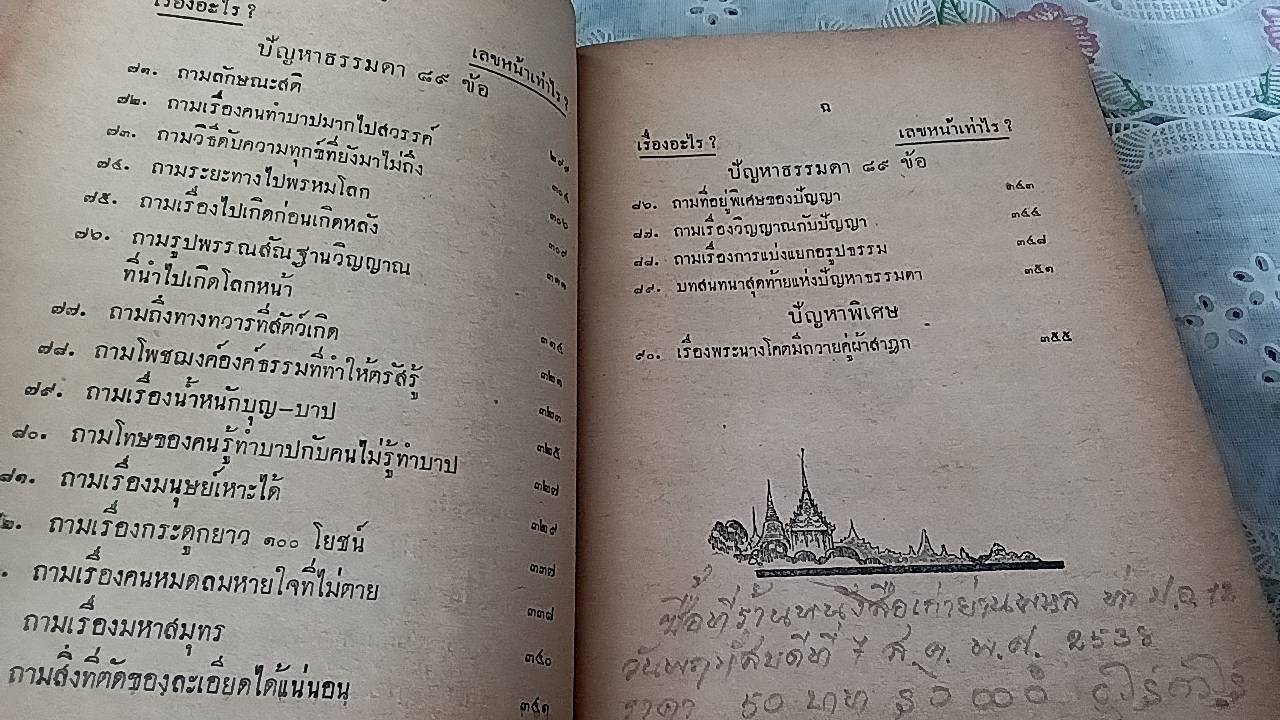 เรื่องอะไร ?
เลขหน้าเท่าไร ?
ปัญหาธรรมดา ๘๙ ข้อ
๗๑. ถามลักษณะสติ ๒๙๗
๗๒. ถามเรื่องคนทำบาปมากไปสวรรค์ ๓๐๔
๗๓. ถามวิธีดับความทุกข์ที่ยังมาไม่ถึง ๓๐๖
๗๔. ถามระยะทางไปพรหมโลก ๓๐๙
๗๕. ถามเรื่องไปเกิดก่อนเกิดหลัง ๓๑๑
๗๖. ถามรูปพรรณสัณฐานวิญญาณ
ที่นำไปเกิดโลกหน้า ๓๑๔
๗๗. ถามถึงทางทวารที่สัตว์เกิด ๓๒๑
๗๘. ถามโพชฌงค์องค์ธรรมที่ทำให้ตรัสรู้ ๓๒๓
๗๙. ถามเรื่องน้ำหนักบุญ–บาป ๓๒๕
๘๐. ถามโทษของคนรู้ทำบาปกับคนไม่รู้ทำบาป ๓๒๗
๘๑. ถามเรื่องมนุษย์เหาะได้ ๓๒๙
๒. ถามเรื่องกระดูกยาว ๑๐๐ โยชน์ ๓๓๗
ถามเรื่องคนหมดลมหายใจที่ไม่ตาย ๓๓๘
ถามเรื่องมหาสมุทร ๓๔๐
ถามสิ่งที่ตัดของละเอียดได้แน่นอน ๓๔๑
ฉ
เรื่องอะไร ?
เลขหน้าเท่าไร ?
ปัญหาธรรมดา ๘๙ ข้อ
๘๖. ถามที่อยู่พิเศษของปัญญา ๓๔๓
๘๗. ถามเรื่องวิญญาณกับปัญญา ๓๔๔
๘๘. ถามเรื่องการแบ่งแยกอรูปธรรม ๓๔๘
๘๙. บทสนทนาสุดท้ายแห่งปัญหาธรรมดา ๓๕๑
ปัญหาพิเศษ
๙๐. เรื่องพระนางโคตมีถวายคู่ผ้าสาฎก ๓๕๕
ซื้อที่ร้านหนังสือเก่าย่าน
วันพฤหัสบดีที่ 7 ส.ค. พ.ศ. 2538
ราคา 50 บาท